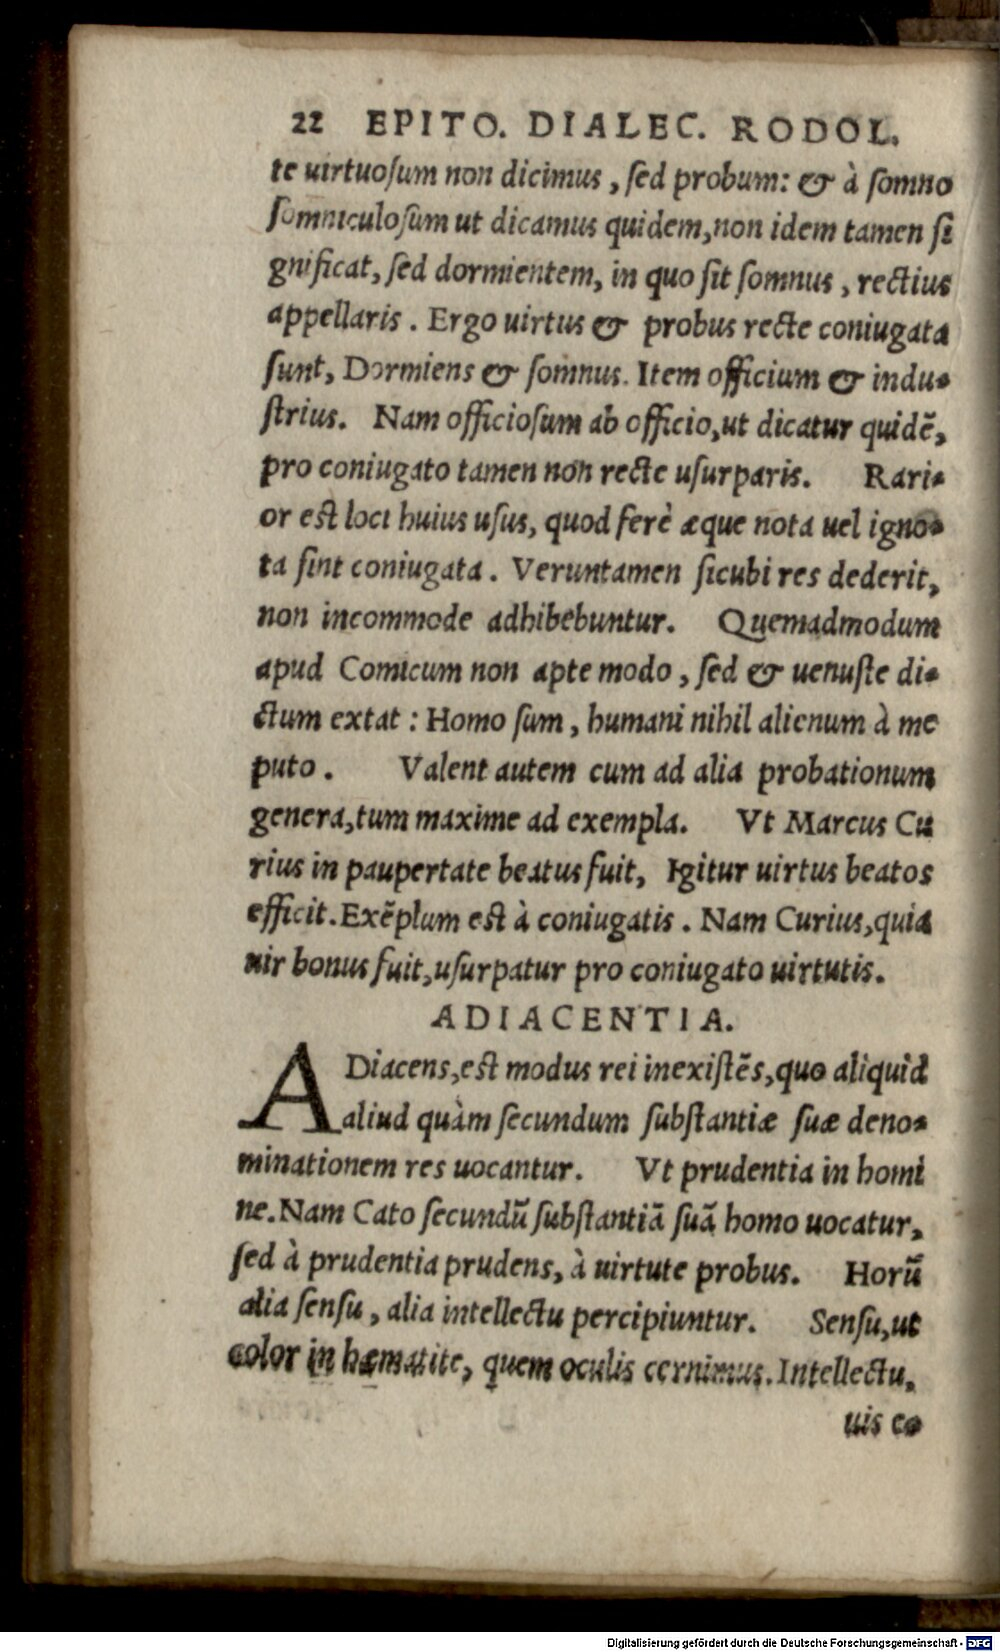 22 EPITO. DIALEC. RODOL.
te uirtuoſum non dicimus, ſed probum: & à ſomno
ſomniculoſum ut dicamus quidem, non idem tamen ſi
gnificat, ſed dormientem, in quo ſit ſomnus, rectius
appellaris. Ergo uirtus & probus recte coniugata
ſunt, Dormiens & ſomnus. Item officium & indu-
ſtrius. Nam officioſum ab officio, ut dicatur quidē,
pro coniugato tamen non recte uſurparis. Rari-
or eſt loci huius uſus, quod ferè æque nota uel igno-
ta ſint coniugata. Veruntamen ſicubi res dederit,
non incommode adhibebuntur. Quemadmodum
apud Comicum non apte modo, ſed & uenuſte di-
ctum extat: Homo ſum, humani nihil alienum à me
puto. Valent autem cum ad alia probationum
genera, tum maxime ad exempla. Vt Marcus Cu
rius in paupertate beatus fuit, Igitur uirtus beatos
efficit. Exēplum eſt à coniugatis. Nam Curius, quia
uir bonus fuit, uſurpatur pro coniugato uirtutis.
ADIACENTIA.
ADiacens, eſt modus rei inexiſtēs, quo aliquid
aliud quàm ſecundum ſubſtantiæ ſuæ deno-
minationem res uocantur. Vt prudentia in homi
ne. Nam Cato ſecundū ſubſtantiā ſuā homo uocatur,
ſed à prudentia prudens, à uirtute probus. Horū
alia ſenſu, alia intellectu percipiuntur. Senſu, ut
color in hæmatite, quem oculis cernimus. Intellectu,
uis eo
Digitalisierung gefördert durch die Deutsche Forschungsgemeinschaft - DFG